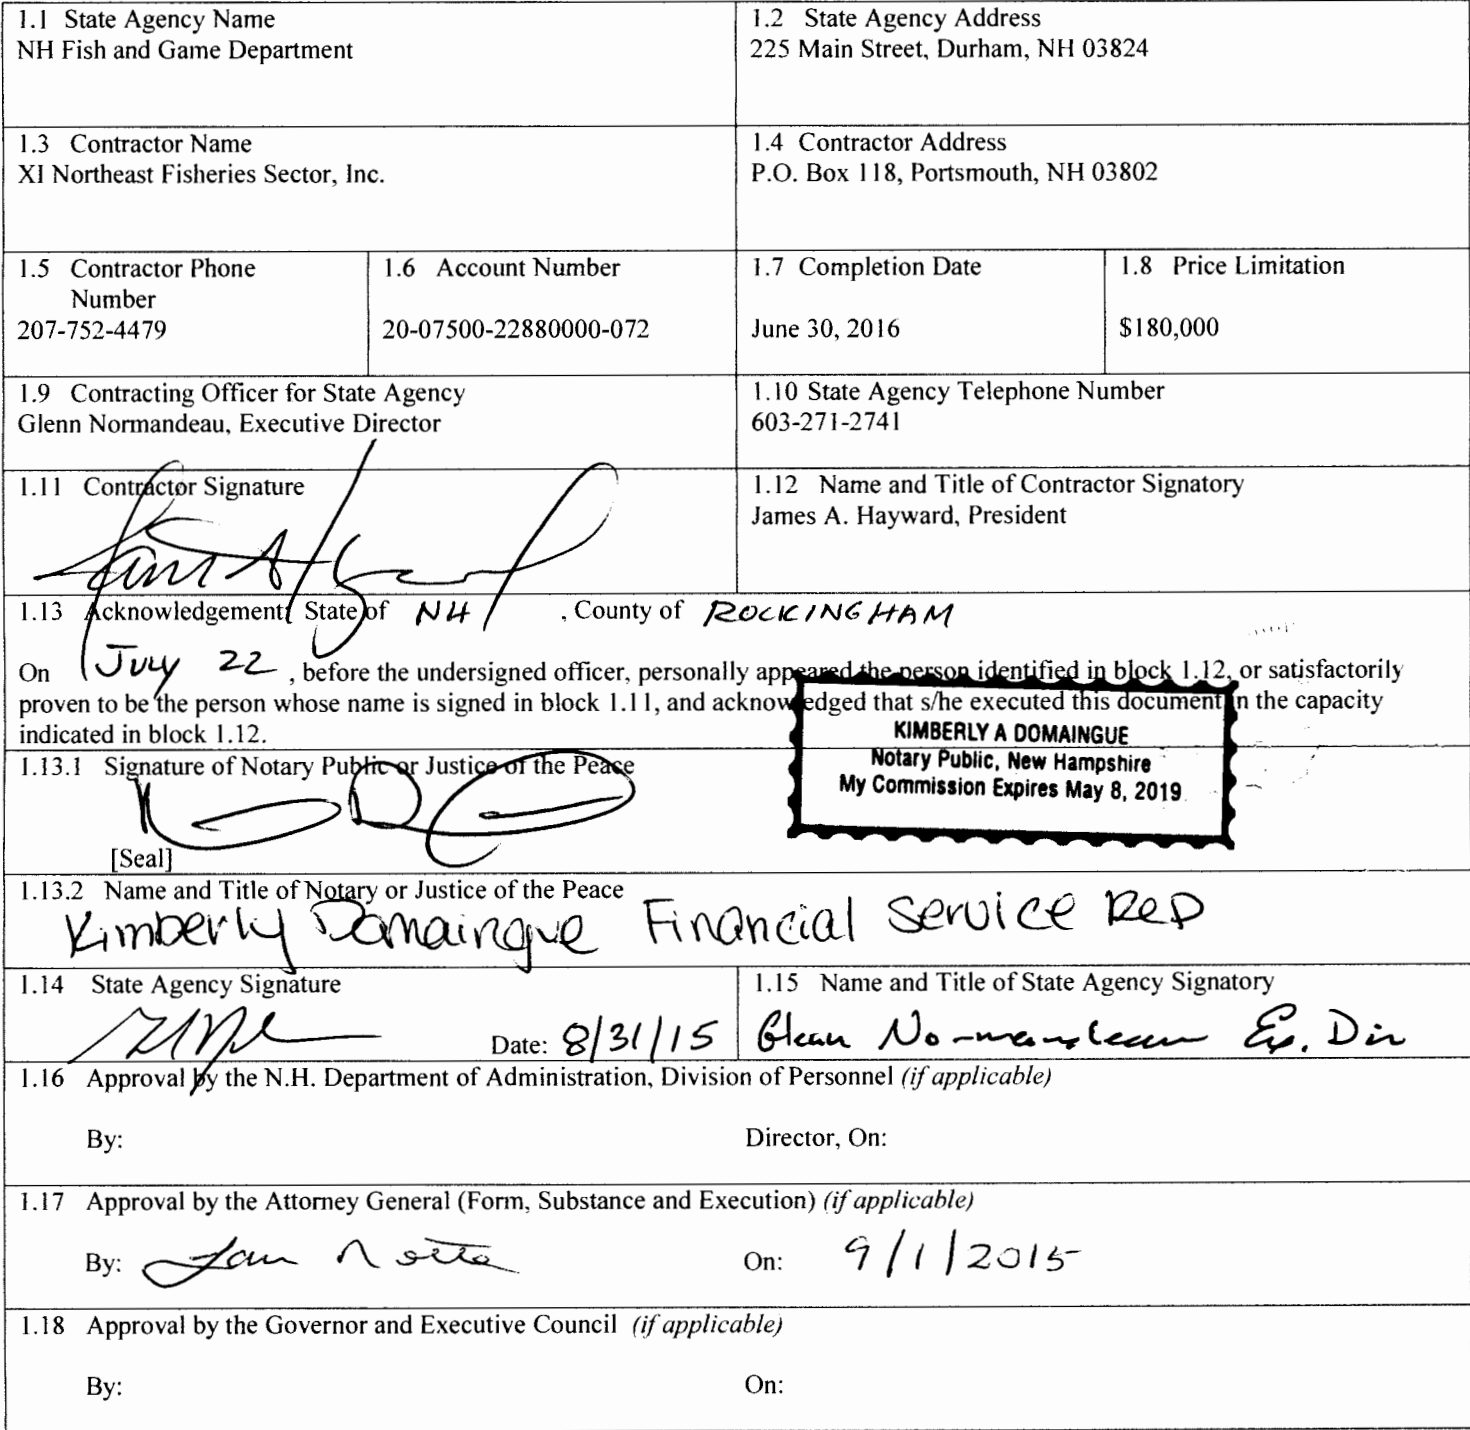 1.1 State Agency Name
NH Fish and Game Department
1.2 State Agency Address
225 Main Street, Durham, NH 03824
1.3 Contractor Name
XI Northeast Fisheries Sector, Inc.
1.4 Contractor Address
P.O. Box 118, Portsmouth, NH 03802
1.5 Contractor Phone
Number
207-752-4479
1.6 Account Number
20-07500-22880000-072
1.7 Completion Date
June 30, 2016
1.8 Price Limitation
$180,000
1.9 Contracting Officer for State Agency
Glenn Normandeau, Executive Director
1.10 State Agency Telephone Number
603-271-2741
1.11 Contractor Signature
1.12 Name and Title of Contractor Signatory
James A. Hayward, President
1.13 Acknowledgement: State of NH , County of ROCKINGHAM
On July 22 , before the undersigned officer, personally appeared the person identified in block 1.12, or satisfactorily
proven to be the person whose name is signed in block 1.11, and acknowledged that s/he executed this document in the capacity
indicated in block 1.12.
KIMBERLY A DOMAINGUE
Notary Public, New Hampshire
My Commission Expires May 8, 2019
1.13.1 Signature of Notary Public or Justice of the Peace
[Seal]
1.13.2 Name and Title of Notary or Justice of the Peace
Kimberly Domaingue Financial Service Rep
1.14 State Agency Signature
Date: 8/31/15
1.15 Name and Title of State Agency Signatory
Glenn Normandeau Ex. Dir
1.16 Approval by the N.H. Department of Administration, Division of Personnel (if applicable)
By: Director, On:
1.17 Approval by the Attorney General (Form, Substance and Execution) (if applicable)
By: On: 9/1/2015
1.18 Approval by the Governor and Executive Council (if applicable)
By: On: